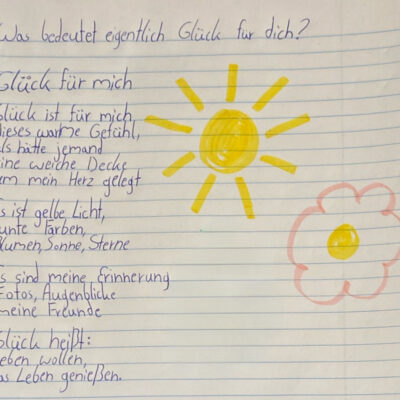 Was bedeutet eigentlich Glück für dich?
Glück für mich
Glück ist für mich,
dieses warme Gefühl,
als hätte jemand
eine weiche Decke
um mein Herz gelegt
Es ist gelbe Licht,
bunte Farben,
Blumen, Sonne, Sterne
Es sind meine Erinnerung
Fotos, Augenblicke
meine Freunde
Glück heißt:
wollen,
das Leben genießen.